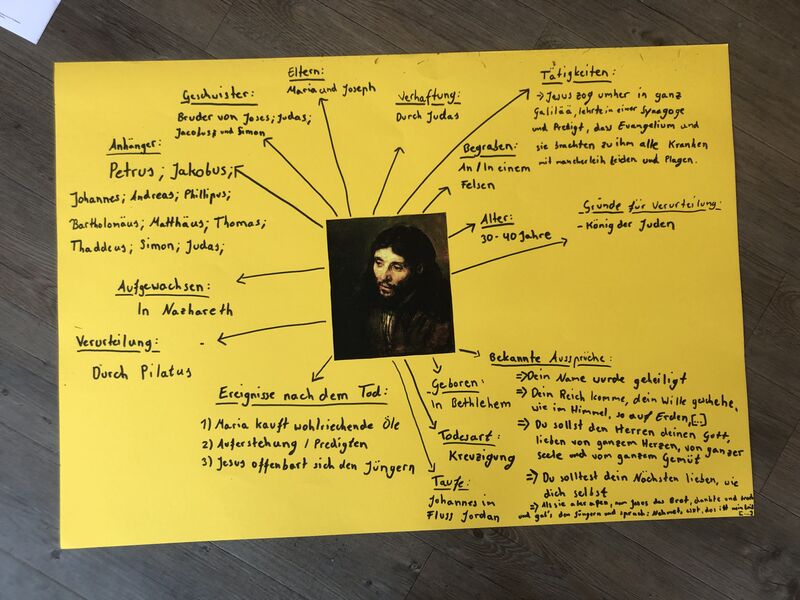 Eltern:
Maria und Joseph
Geschwister:
Bruder von Joses; Judas;
Jacobus und Simon
Anhänger:
Petrus; Jakobus;
Johannes; Andreas; Phillipus;
Bartholonäus; Matthäus; Thomas;
Thaddeus; Simon; Judas;
Aufgewachsen:
In Nazhareth
Verurteilung:
Durch Pilatus
Verhaftung:
Durch Judas
Tätigkeiten:
→ Jesus zog umher in ganz
Galiläa, lehrte in einer Synagoge
und Predigt, das Evangelium und
sie brachten zu ihm alle Kranken
mit mancherleih Leiden und Plagen.
Begraben:
An / In einem
Felsen
Alter:
30-40 Jahre
Gründe für Verurteilung:
- König der Juden
Ereignisse nach dem Tod:
1) Maria kauft wohlriechende Öle
2) Auferstehung / Predigten
3) Jesus offenbart sich den Jüngern
Geboren:
In Bethlehem
Todesart:
Kreuzigung
Taufe:
Johannes im
Fluss Jordan
Bekannte Aussprüche:
⇒ Dein Name wurde geheiligt
⇒ Dein Reich komme, dein Wille geschehe,
wie im Himmel, so auf Erden,[...]
⇒ Du sollst den Herren deinen Gott,
lieben von ganzem Herzen, von ganzer
seele und vom ganzem Gemüt
⇒ Du solltest dein Nächsten lieben, wie
dich selbst
⇒ Als sie aber aßen, nam Jesus das Brot, dankte und brach
und gab's den Jüngern und sprach: Nehmet, esst, das ist mein
[...]